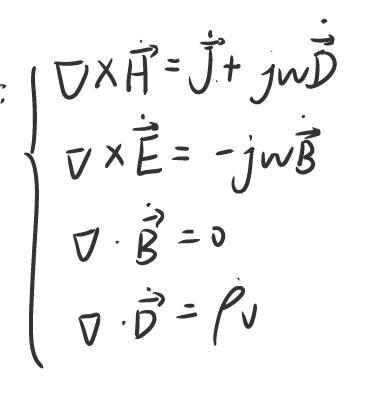 ∇ × \dot{\vec{H}} = \dot{\vec{J}} + jω\dot{\vec{D}}
∇ × \dot{\vec{E}} = -jω\dot{\vec{B}}
∇ · \dot{\vec{B}} = 0
∇ · \dot{\vec{D}} = \dot{ρ}_v